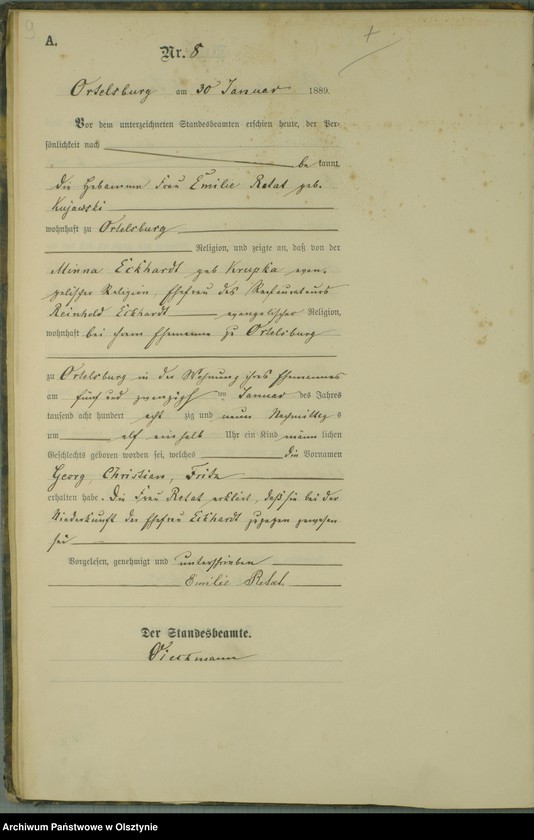 9
A.
Nr. 8
Ortelsburg am 30 Januar 1889.
Vor dem unterzeichneten Standesbeamten erschien heute, der Per-
sönlichkeit nach
be kannt,
die Hebamme Frau Emilie Retat geb.
Kujawski
wohnhaft zu Ortelsburg
Religion, und zeigte an, daß von der
Minna Eckhardt geb Krupka evan-
gelischer Religion, Ehefrau des Restaurateurs
Reinhold Eckhardt evangelischer Religion,
wohnhaft bei ihrem Ehemanne zu Ortelsburg
zu Ortelsburg in der Wohnung ihres Ehemannes
am fünf und zwanzigsten Januar des Jahres
tausend acht hundert acht zig und neun Nachmittag s
um elf einhalb Uhr ein Kind männ lichen
Geschlechts geboren worden sei, welches die Vornamen
Georg, Christian, Fritz
erhalten habe. Die Frau Retat erklärt, daß sie bei der
Niederkunft der Ehefrau Eckhardt zugegen gewesen
sei
Vorgelesen, genehmigt und unterschrieben
Emilie Retat
Der Standesbeamte.
Archiwum Państwowe w Olsztynie